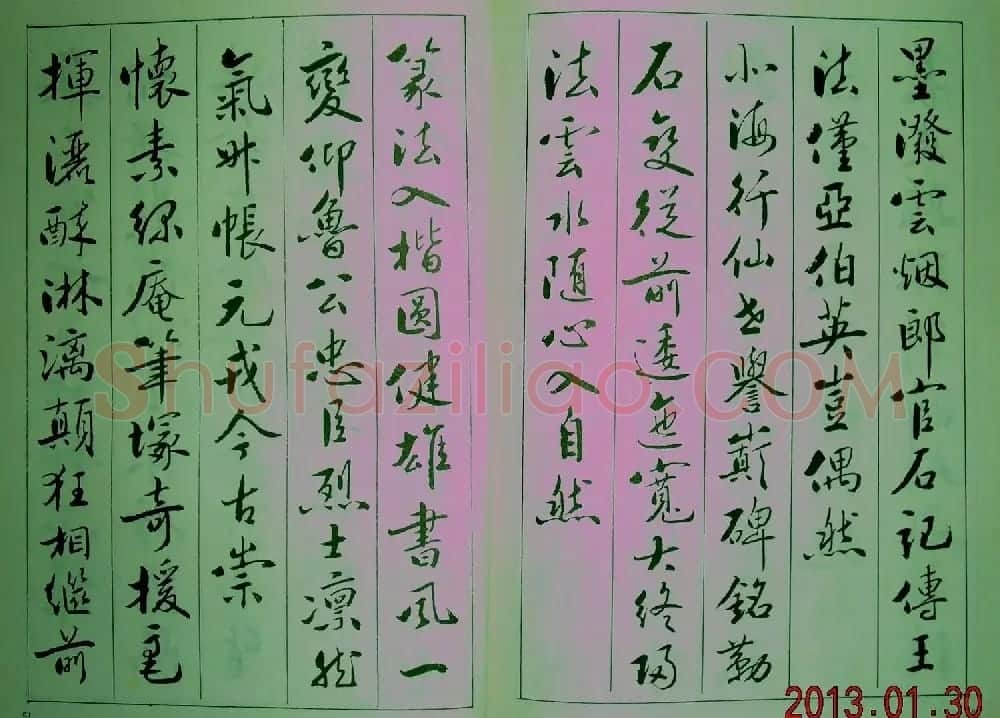 墨潑雲烟郎官石記傳王
法僅亞伯英豈偶然
北海行仙書譽巔碑銘勒
石變從前逶迤寬大終歸
法雲水隨心入自然
篆法入楷圓健雄書風一
變仰魯公忠臣烈士凛然
氣升帳元戎今古崇
懷素綠庵筆塚奇援毫
揮灑酥淋漓顛狂相繼前
Shufaziliao.COM
2013.01.30